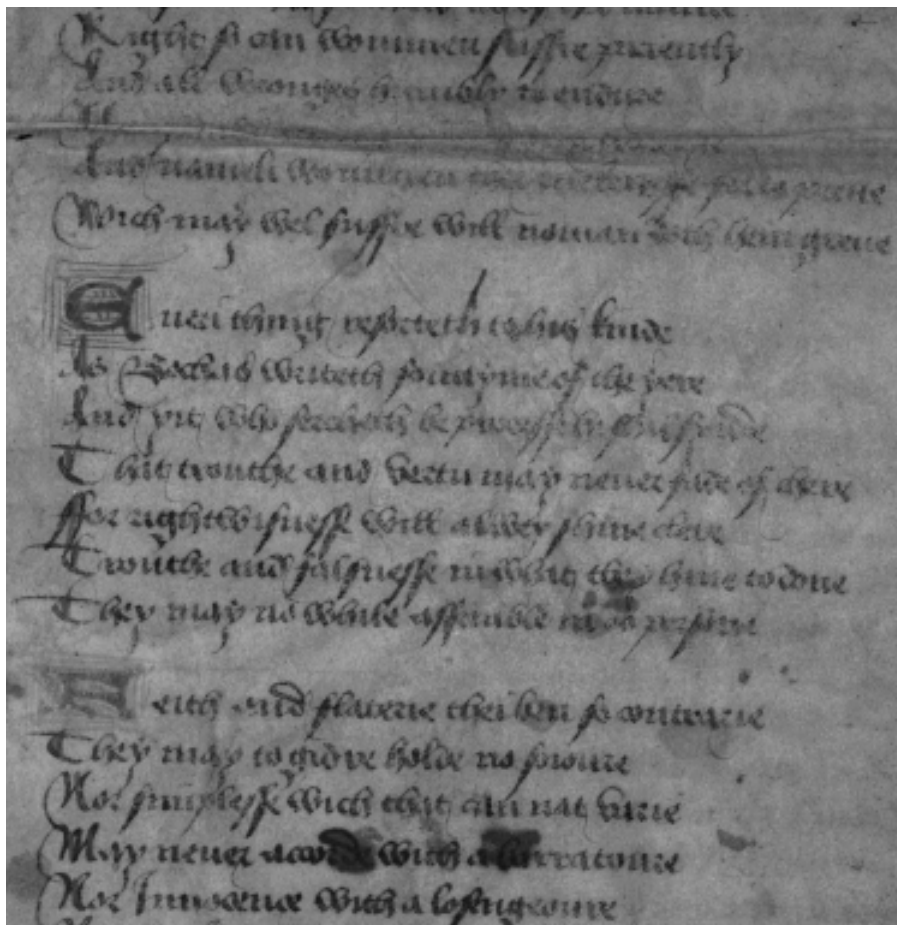 Right so can wommen suffre paciently
And all wronges humbly to endure
And nameli wommen
Wich may wel suffre will noman with hem greve
Everi thing resorteth to his kinde
As Bochas writeth somtyme of the yere
And yit who sercheth be processe he shal finde
That trouthe and vertu may never fade of chere
Ffor rightwisnesse will alwey shine clere
Trouthe and falsnesse in what they have to done
They may no while assemble in oo persone
Feith and flaterie thei ben so contrarie
They may togidre holde no sojoure
Nor simplesse wich that can nat varie
May never acorde with a barratoure
Nor Innocence with a losengeoure